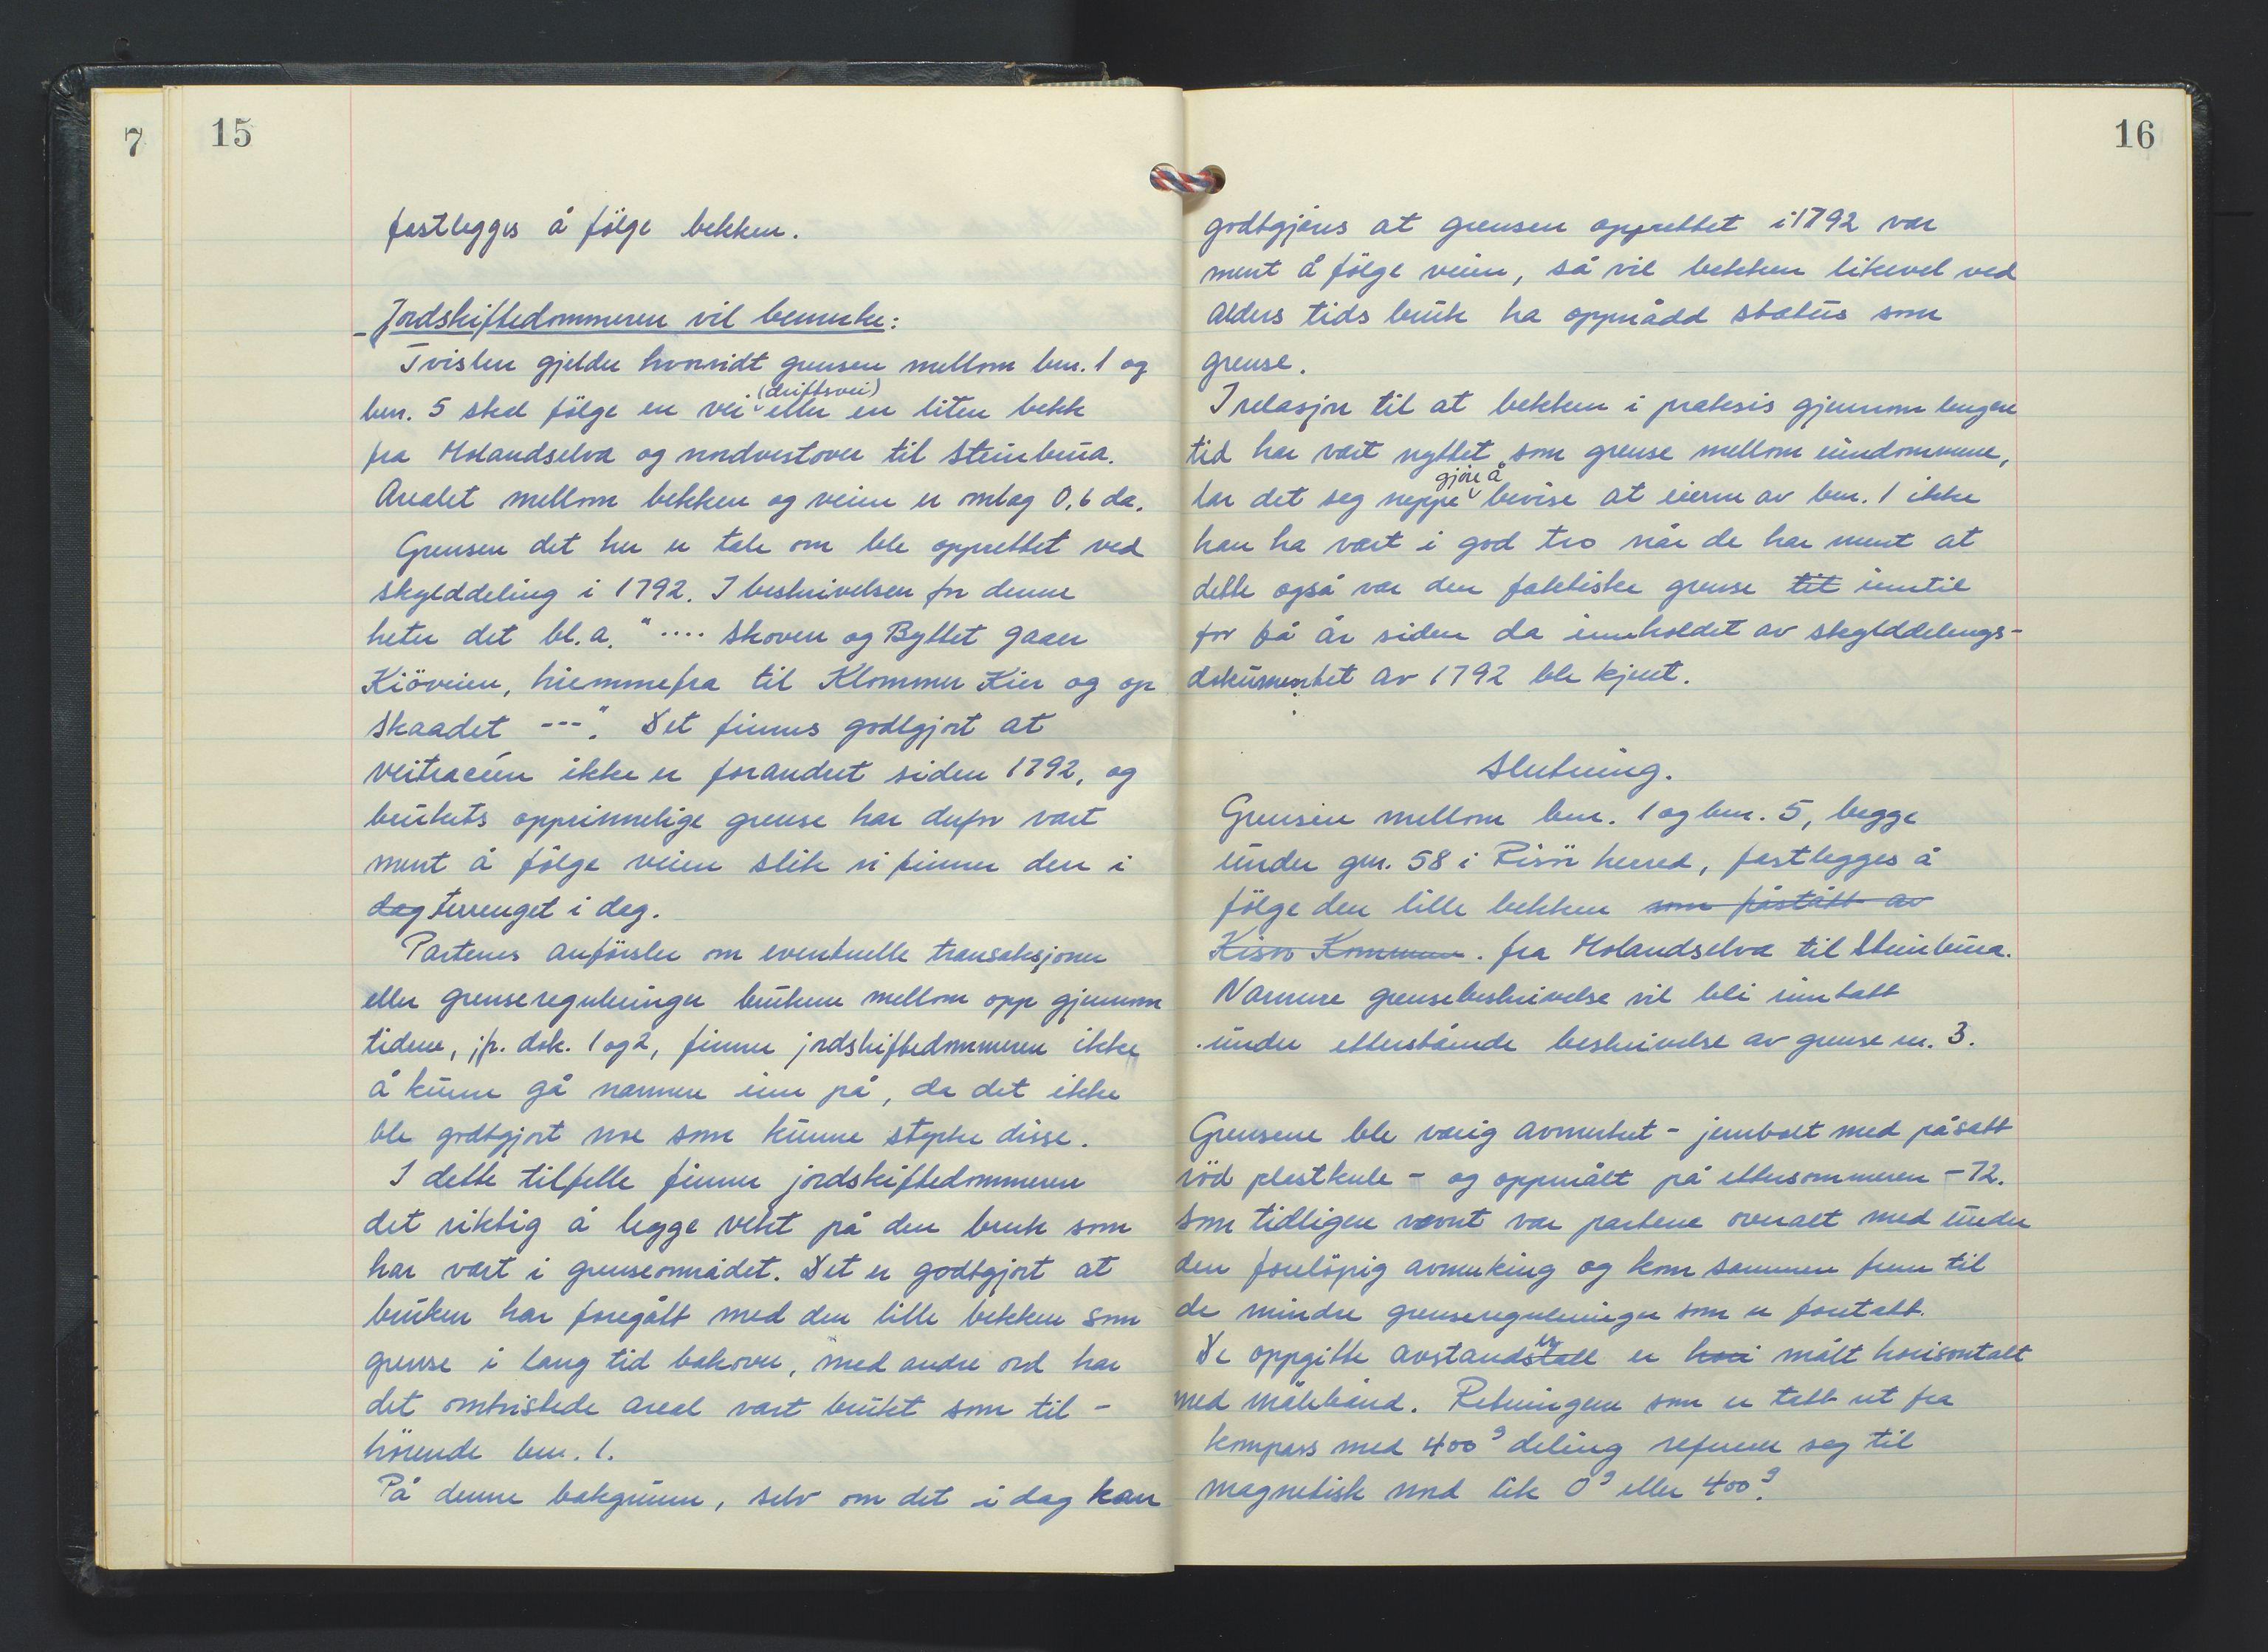 7
15
fastlegges å fölge bekken.
Jordskiftedommeren vil bemerke:
Tvisten gjelder hvorvidt grensen mellom bnr. 1 og
bnr. 5 skal fölge en vei (driftsvei) eller en liten bekk
fra Molandselva og nordvestover til Steinbrua.
Arealet mellom bekken og veien er omlag 0,6 da.
Grensen det her er tale om ble opprettet ved
skylddeling i 1792. I beskrivelsen for denne
heter det bl.a. ".... Skoven og Byttet gaaer
Kiöveien, hiemmefra til Klommer Kier og op
Skaadet ---". Det finnes godtgjort at
veitraceén ikke er forandret siden 1792, og
brukets opprinnelige grense har derfor vært
ment å fölge veien slik vi finner den i
dag terrenget i dag.
Partenes anförsler om eventuelle transaksjoner
eller grensereguleringer brukene mellom opp gjennom
tidene, jfr. dok. 1 og 2, finner jordskiftedommeren ikke
å kunne gå nærmere inn på, da det ikke
ble godtgjort noe som kunne styrke disse.
I dette tilfelle finner jordskiftedommeren
det riktig å legge vekt på den bruk som
har vært i grenseområdet. Det er godtgjort at
bruken har foregått med den lille bekken som
grense i lang tid bakover, med andre ord har
det omtvistede areal vært brukt som til-
hörende bnr. 1.
På denne bakgrunn, selv om det i dag kan
16
godtgjöres at grensen opprettet i 1792 var
ment å fölge veien, så vil bekken likevel ved
alders tids bruk ha oppnådd status som
grense.
I relasjon til at bekken i praksis gjennom lengere
tid har vært nyttet som grense mellom eiendommene,
lar det seg neppe gjöre å bevise at eierne av bnr. 1 ikke
kan ha vært i god tro når de har ment at
dette også var den faktiske grense til inntil
for få år siden da innholdet av skylddelings-
dokumentet av 1792 ble kjent.
Slutning.
Grensen mellom bnr. 1 og bnr. 5, begge
under gnr. 58 i Risör herred, fastlegges å
fölge den lille bekken som påstått av
Risör Kommune. fra Molandselva til Steinbrua.
Nærmere grensebeskrivelse vil bli inntatt
under etterstående beskrivelse av grense nr. 3.
Grensene ble varig avmerket - jernbolt med påsatt
röd plastkule - og oppmålt på ettersommeren -72.
Som tidligere nevnt var partene overalt med under
den forelöpig avmerking og kom sammen frem til
de mindre grensereguleringer som er foretatt.
De oppgitte avstandstall er er hori målt horisontalt
med målebånd. Retningene som er tatt ut fra
kompass med 400g deling refererer seg til
magnetisk nord lik 0g eller 400g.